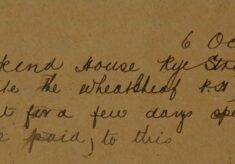 6 Oc
kend House Rye Str
te the Wheatsheaf P.H
t for a few days
e paid, to this